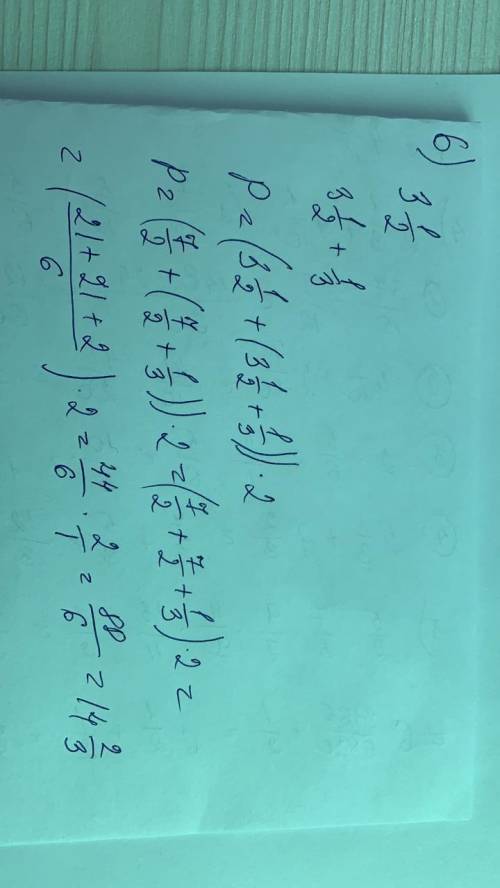 б) 3 1/2
3 1/2 + 1/3
P = (3 1/2 + (3 1/2 + 1/3)) · 2
P = (7/2 + (7/2 + 1/3)) · 2 = (7/2 + 7/2 + 1/3) · 2 =
= (21 + 21 + 2 / 6) · 2 = 44/6 · 2/1 = 88/6 = 14 2/3